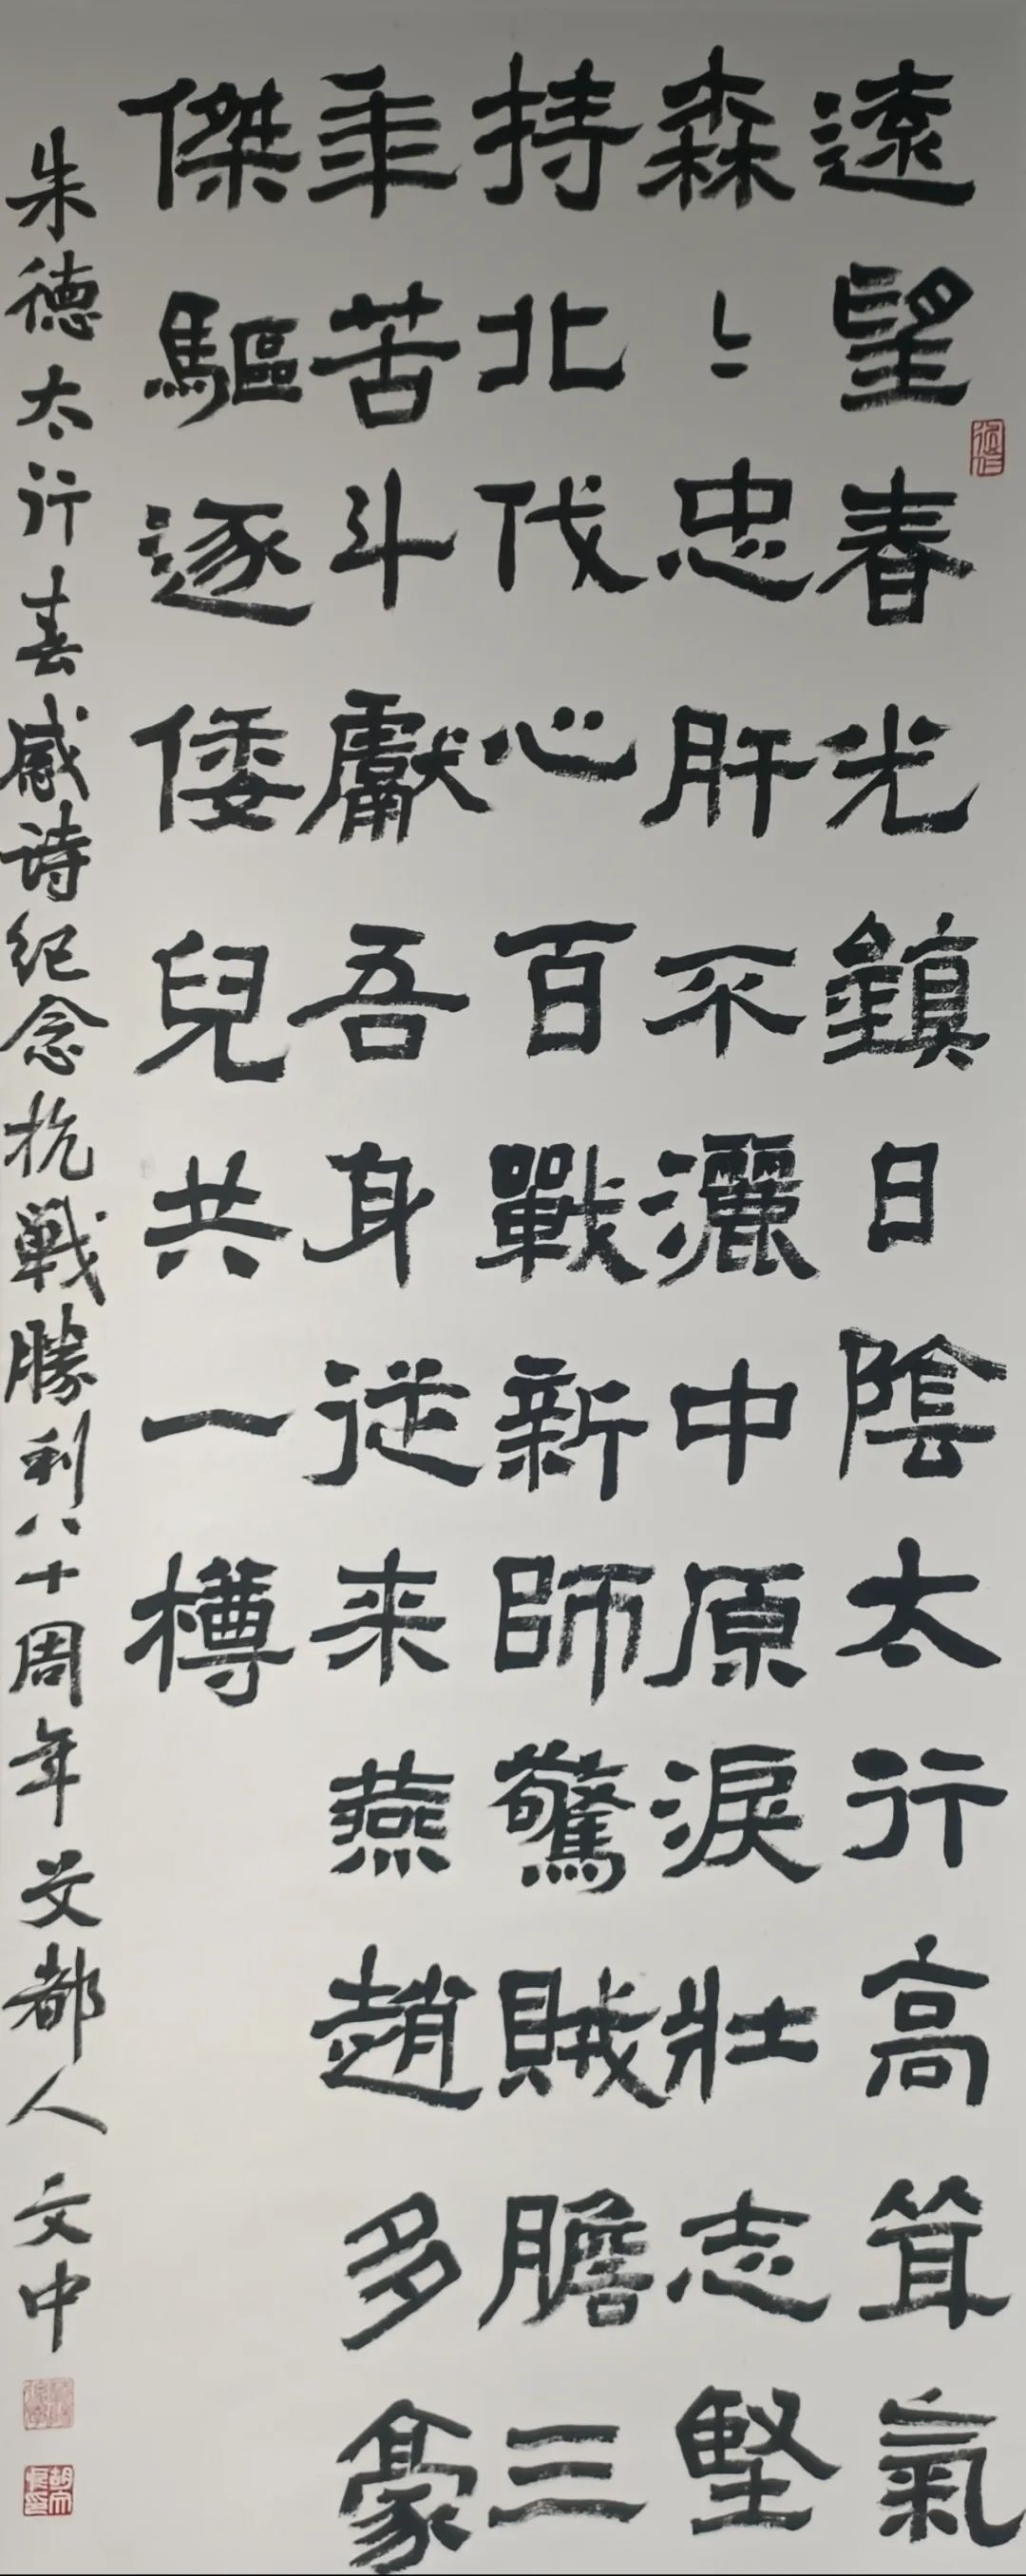 逺望春光鎮日陰太行高耸氣
森々忠肝不灑中原淚壯志堅
持北伐心百戰新師驚賊膽三
年苦斗獻吾身從来燕趙多豪
傑驅逐倭兒共一樽
朱德太行春感诗纪念抗戦勝利八十周年文都人文中